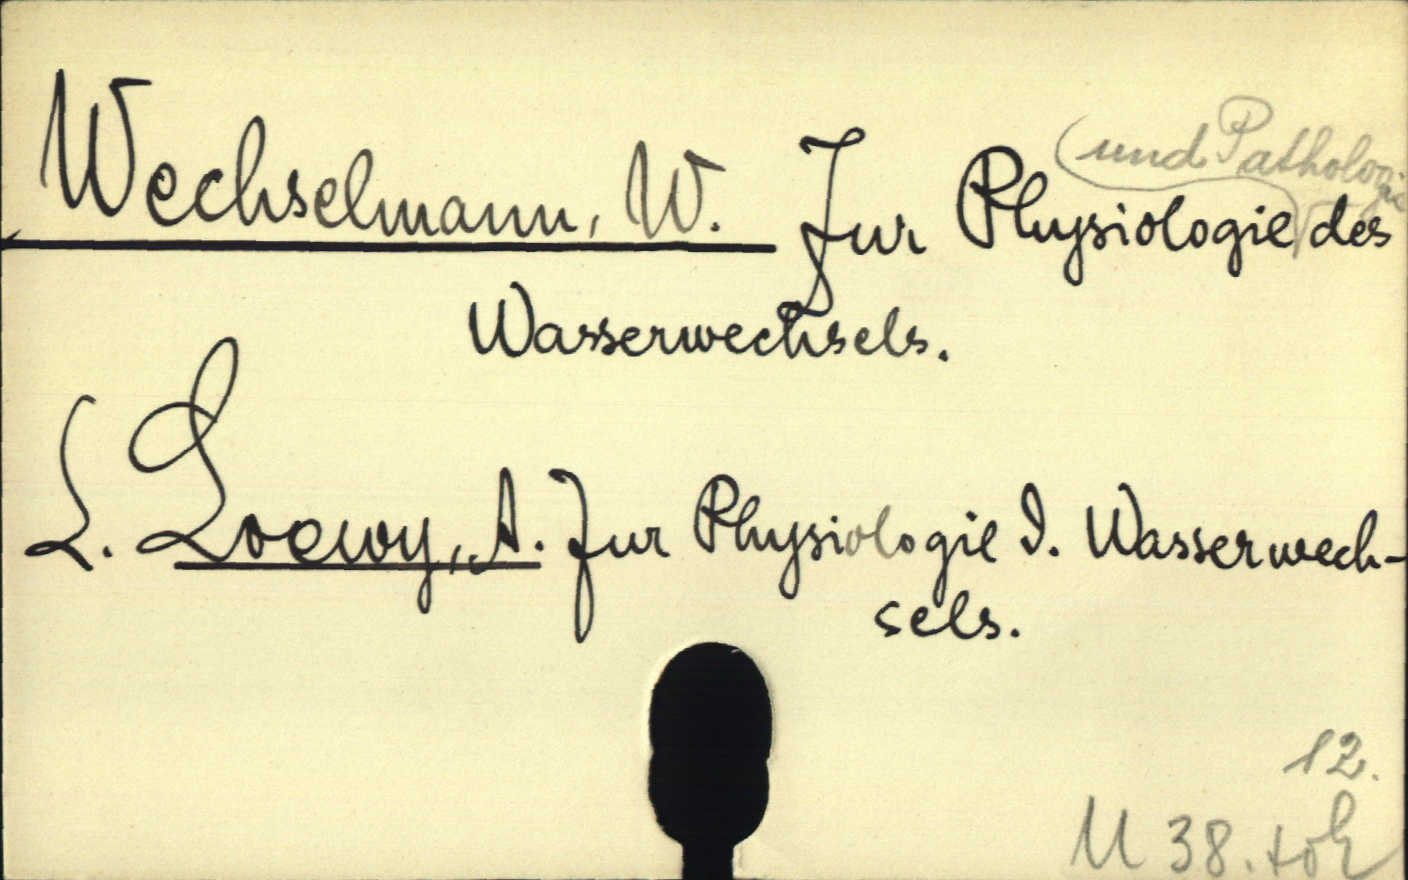 Wechselmann, W. Zur Physiologie (und Pathologie des
Wasserwechsels.
S. Loewy, A. Zur Physiologie d. Wasserwech-
sels.
12.
U 38.